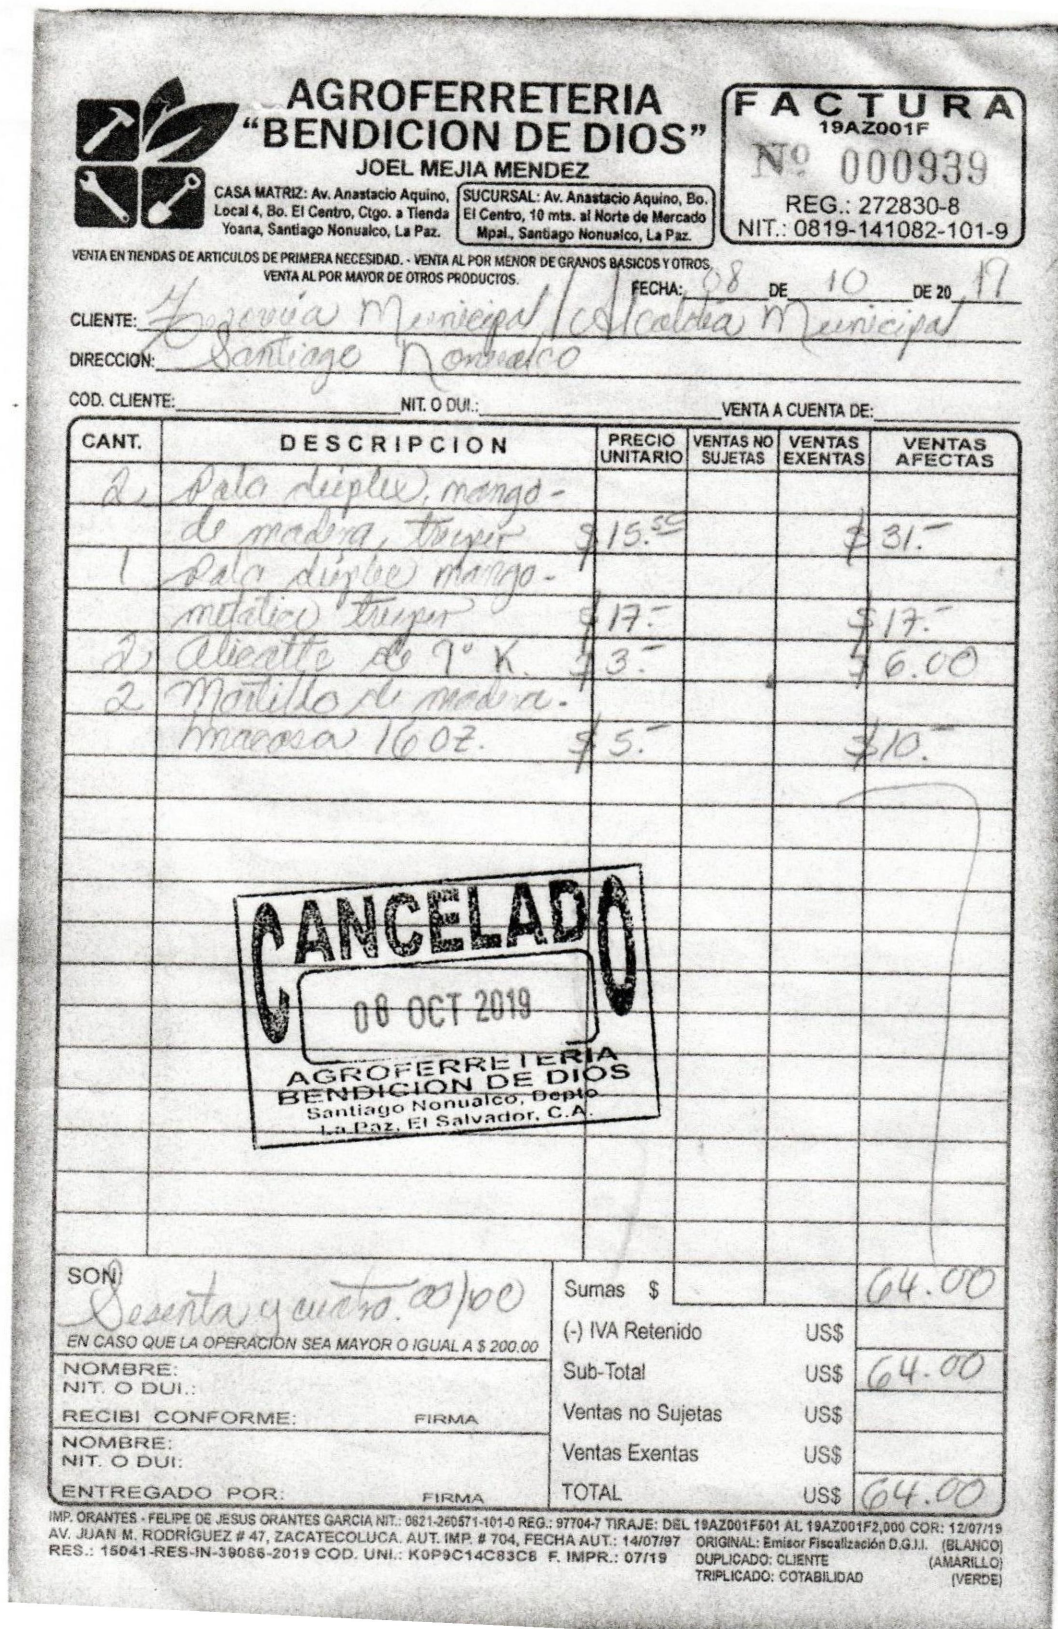 AGROFERRETERIA
"BENDICION DE DIOS"
JOEL MEJIA MENDEZ
CASA MATRIZ: Av. Anastacio Aquino,
Local 4, Bo. El Centro, Ctgo. a Tienda
Yoana, Santiago Nonualco, La Paz.
SUCURSAL: Av. Anastacio Aquino, Bo.
El Centro, 10 mts. al Norte de Mercado
Mpal., Santiago Nonualco, La Paz.
FACTURA
19AZ001F
Nº 000939
REG.: 272830-8
NIT.: 0819-141082-101-9
VENTA EN TIENDAS DE ARTICULOS DE PRIMERA NECESIDAD. - VENTA AL POR MENOR DE GRANOS BASICOS Y OTROS,
VENTA AL POR MAYOR DE OTROS PRODUCTOS.
FECHA: 08 DE 10 DE 20 19
CLIENTE: Tesorería Municipal / Alcaldía Municipal
DIRECCION: Santiago Nonualco
COD. CLIENTE: NIT. O DUI.: VENTA A CUENTA DE:
CANT. DESCRIPCION PRECIO UNITARIO VENTAS NO SUJETAS VENTAS EXENTAS VENTAS AFECTAS
2 Pala dúplex, mango-
de madera, truper $15.50 $31.-
1 Pala dúplex mango-
metalico truper $17.- $17.-
2 Alicatte de 9" K. $3.- $6.00
2 Martillo de madera-
16 oz. $5.- $10.-
CANCELADO
08 OCT 2019
AGROFERRETERIA
BENDICION DE DIOS
Santiago Nonualco, Depto.
La Paz, El Salvador, C.A.
SON: Sesenta y cuatro 00/100
EN CASO QUE LA OPERACION SEA MAYOR O IGUAL A $ 200.00
NOMBRE:
NIT. O DUI.:
RECIBI CONFORME: FIRMA
NOMBRE:
NIT. O DUI:
ENTREGADO POR: FIRMA
Sumas $ 64.00
(-) IVA Retenido US$
Sub-Total US$ 64.00
Ventas no Sujetas US$
Ventas Exentas US$
TOTAL US$ 64.00
IMP. ORANTES - FELIPE DE JESUS ORANTES GARCIA NIT.: 0821-260571-101-0 REG.: 97704-7 TIRAJE: DEL 19AZ001F501 AL 19AZ001F2,000 COR: 12/07/19
AV. JUAN M. RODRÍGUEZ # 47, ZACATECOLUCA. AUT. IMP. # 704, FECHA AUT.: 14/07/97
RES.: 15041-RES-IN-39086-2019 COD. UNI.: K0P9C14C83C8 F. IMPR.: 07/19
ORIGINAL: Emisor Fiscalización D.G.I.I. (BLANCO)
DUPLICADO: CLIENTE (AMARILLO)
TRIPLICADO: COTABILIDAD (VERDE)